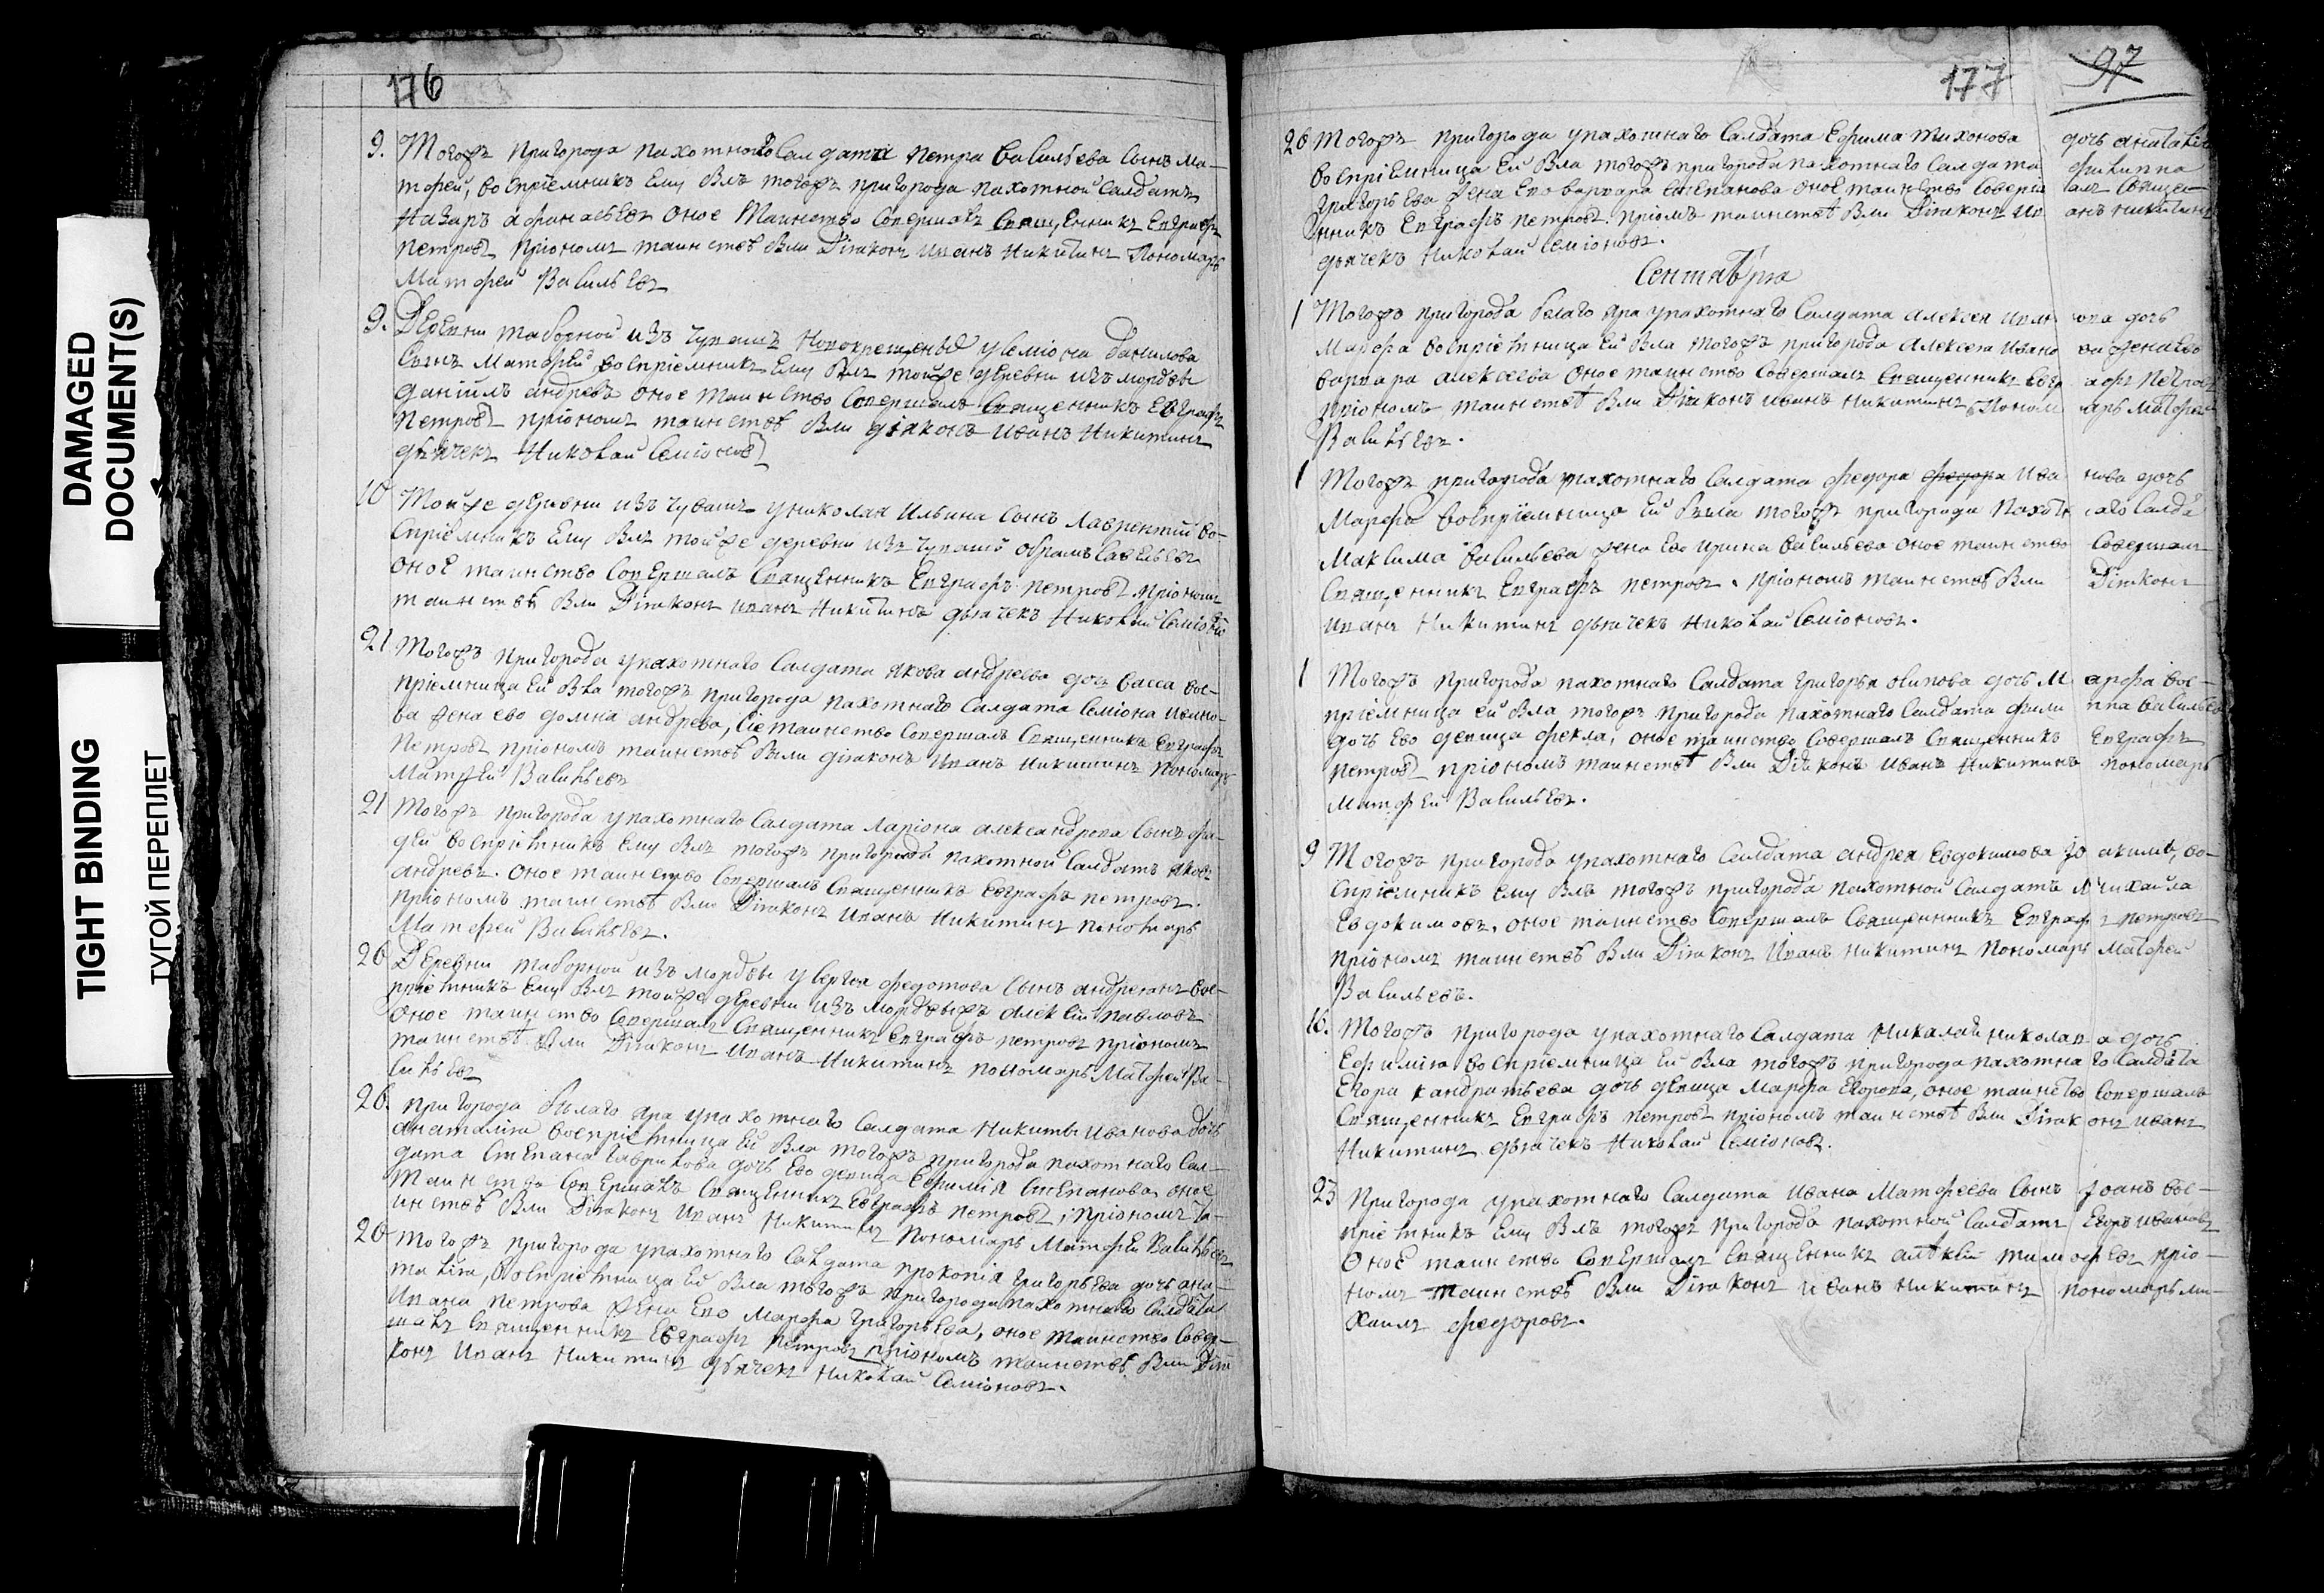 DAMAGED
DOCUMENT(S)
TIGHT BINDING
ТУГОЙ ПЕРЕПЛЕТ
176
9. Тогожъ пригорода пахотного Салдата петра васильева сынъ ма-
тфей, воспрїемникъ ему былъ тогожъ пригорода пахотной салдатъ
Назаръ афонасьевъ оное таинство совершалъ священникъ Евграфъ
петровъ прїономъ таинствѣ были Дїаконъ Иванъ Никитинъ Пономарь
Матфей Васильевъ
9. Деревни таборной изъ чувашъ Новокрещеныхъ у семїона данилова
сынъ Матфей воспрїемникъ ему былъ тойже деревни изъ мордвы
данїилъ андревъ оное таинство совершалъ священникъ Евграфъ
Петровъ прїономъ таинствѣ были дїаконъ Иванъ Никитинъ
дьячекъ Николай Семїоновъ
10 Тойже деревни изъ чувашъ у николая Ильина сынъ Лаврентїй во-
спрїемникъ ему былъ тойже деревни изъ чувашъ обрамъ савельевъ
оное таинство совершалъ священникъ Евграфъ петровъ прїономъ
таинствѣ были Дїаконъ Иванъ Никитинъ дьячекъ Николай Семїоно
21 Тогожъ пригорода упахотнаго Салдата якова андреева дочь васса вос-
прїемница ей была тогожъ пригорода пахотнаго Салдата семїона ивано-
ва жена ево домна андрева, сїе таинство совершалъ священникъ Евграфъ
Петровъ прїономъ таинствѣ были дїаконъ Иванъ Никитинъ пономарь
Матфей Васильевъ
21 Тогожъ пригорода упахотнаго Салдата ларїона александрова сынъ фа-
дей воспрїемникъ ему былъ тогожъ пригорода пахотной салдатъ яковъ
андревъ. оное таинство совершалъ священникъ Евграфъ петровъ.
прїономъ таинствѣ были Дїаконъ Иванъ Никитинъ пономарь
Матфей Васильевъ.
26 Деревни таборной изъ мордвы у сергея федотова сынъ андреянъ вос-
прїемникъ ему былъ тойже деревни изъ мордвыжъ алексей павловъ
оное таинство совершалъ священникъ Евграфъ петровъ прїономъ
таинствѣ были Дїаконъ Иванъ Никитинъ пономарь Матфей Ва-
сильевъ
26. пригорода бѣлаго яра упахотнаго Салдата Никиты Иванова дочь
анаталїя воспрїемница ей была тогожъ пригорода пахотнаго сал-
дата степана гаврилова дочь ево девица Ефимїя степанова, оное
таинство совершалъ священникъ Евграфъ петровъ, прїономъ та-
инствѣ были Дїаконъ Иванъ Никитинъ Пономарь Матфей Васильевъ
26 тогожъ пригорода упахотнаго салдата прокопїя григорьева дочь ана-
талїя, воспрїемница ей была тогожъ пригорода пахотнаго салдата
Ивана петрова жена ево Марфа григорьева, оное таинство совер-
шалъ священникъ Евграфъ петровъ прїономъ таинствѣ были Дїа
конъ Иванъ Никитинъ дьячекъ Николай Семїоновъ.
177 97
26 Тогожъ пригорода упахотнаго Салдата Ефима тихонова дочь анаталїя
воспрїемница ей была тогожъ пригорода пахотнаго Салдата филиппа
григорьева жена ево варвара степанова оное таинство соверша алъ свяще-
нникъ Евграфъ петровъ. прїономъ таинствѣ были Дїаконъ Ив анъ никитинъ
дьячекъ Николай семїоновъ.
Сентября
1 Тогожъ пригорода белаго яра упахотнаго Салдата алексея ивано ова дочь
Марфа воспрїемница ей была тогожъ пригорода алексея Ивано ва жена ево
варвара алексеева оное таинство совершалъ священникъ Евгр афъ петровъ
прїономъ таинствѣ были Дїаконъ Иванъ Никитинъ, Поном арь матфей
Васильевъ.
1 Тогожъ пригорода пахотнаго Салдата федора федора Ива нова дочь
Марфа воспрїемница ей была тогожъ пригорода пахотн аго салда
Максима васильева жена ево ирина васильева оное таинство совершалъ
священникъ Евграфъ петровъ. прїономъ таинствѣ были Дїаконъ
Иванъ Никитинъ дьячекъ Николай семїоновъ.
1 Тогожъ пригорода пахотнаго Салдата григорья осипова дочь М арфа вос-
прїемница ей была тогожъ пригорода пахотнаго Салдата фили ппа васильева
дочь ево девица фекла, оное таинство совершалъ священникъ Евграфъ
петровъ прїономъ таинствѣ были Дїаконъ Иванъ Никитинъ пономарь
Матфей Васильевъ.
9 Тогожъ пригорода упахотнаго Салдата андрея Евдокимова Іо акимъ, во-
спрїемникъ ему былъ тогожъ пригорода пахотной Салдатъ михайла
Евдокимовъ, оное таинство совершалъ священникъ Евграф ъ петровъ
прїономъ таинствѣ были Дїаконъ Иванъ никитинъ пономарь матфей
Васильевъ.
16. Тогожъ пригорода упахотнаго Салдата Никалая николаев а дочь
Ефимїя воспрїемница ей была тогожъ пригорода пахотна го Салдата
Егора кандратьева дочь девица Марфа Егорова, оное таинство совершалъ
священникъ Евграфъ петровъ прїономъ таинствѣ были Дїак онъ иванъ
Никитинъ дьячекъ Николай Семїоновъ.
23 Пригорода упахотнаго Салдата Ивана Матфеева сынъ Іоанъ вос-
прїемникъ ему былъ тогожъ пригорода пахотной салдатъ Егоръ ивановъ
оное таинство совершалъ священникъ алѣкѣй тимофеевъ прїо-
номъ таинствѣ были Дїаконъ иванъ никитинъ пономарь ми-
хаилъ федоровъ.